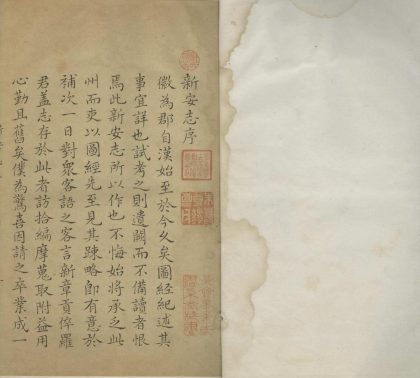 新安志序
徽為郡自漢始至於今久矣圖經紀述其
事宜詳也試考之則遺闕而不備讀者恨
焉此新安志所以作也不悔始將承乏此
州而吏以圖經先至見其踈略即有意於
補次一日對衆客語之客言新章貢倅羅
君蓋志存於此者訪拾編摩蒐取附益用
心勤且舊矣僕為驚喜因請之卒業成一